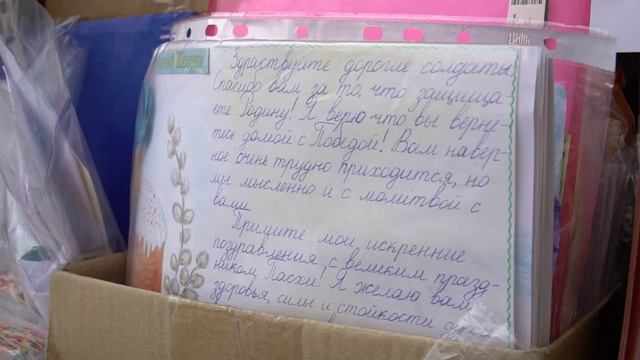 Здраствуйте дорогие солдаты
Спасибо вам за то, что защища
ете Родину! Я верю что вы верне-
тесь домой с Победой! Вам навер-
ное очень трудно приходится, но
мы мысленно и с молитвой с
вами.
Примите мои искренние
поздравления, с великим празд-
ником Пасхи! Я желаю вам
здоровья, силы и стойкости